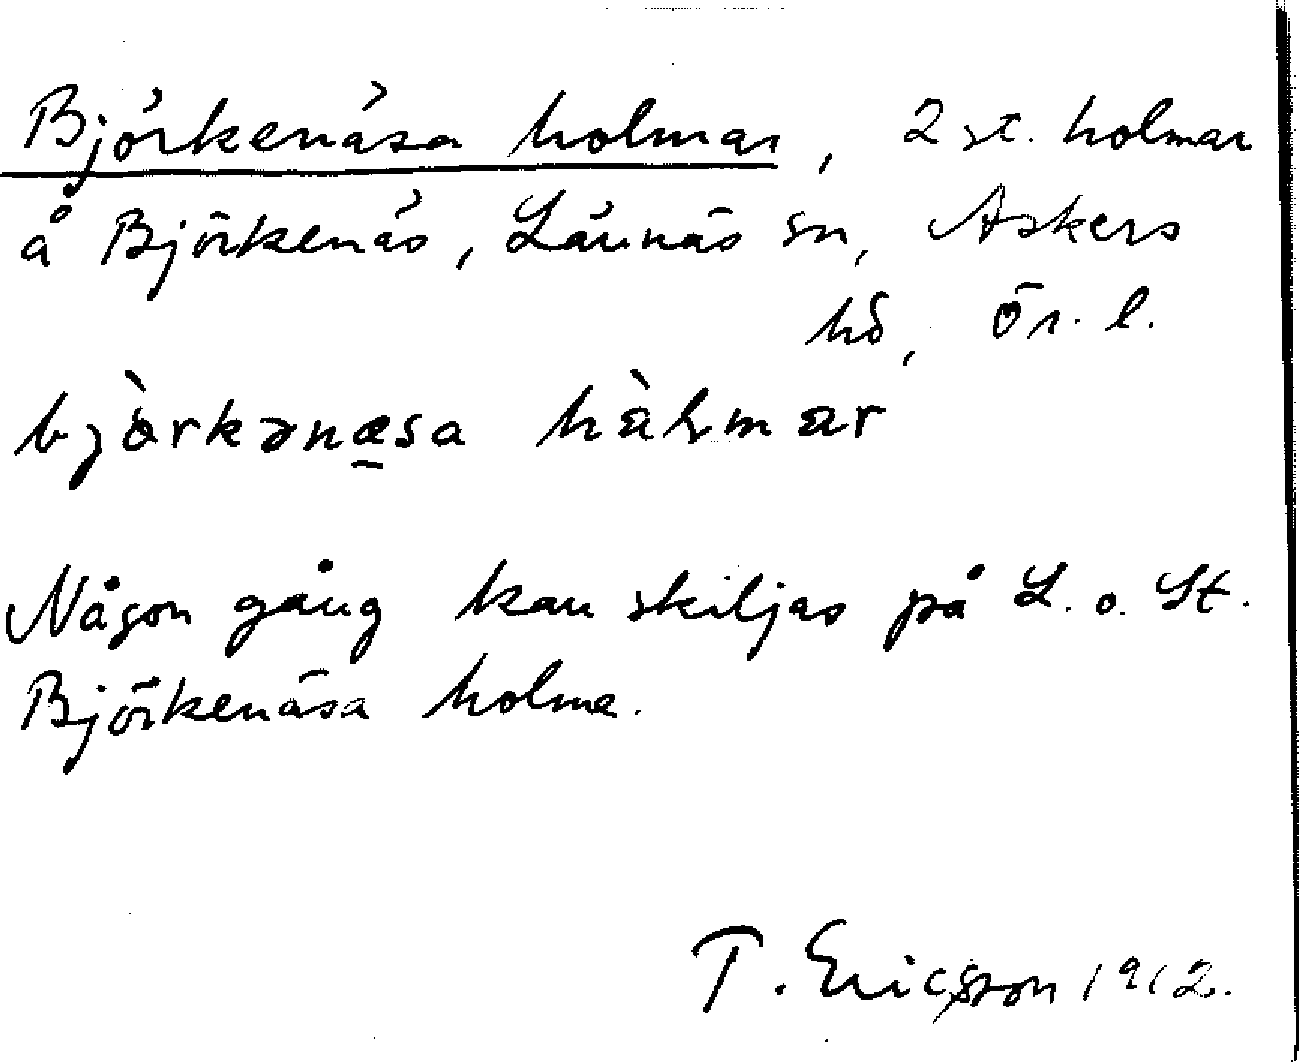 Björkenäsa holmar, 2 st. holmar
å Björkenäs, Lännäs sn, Askers
hd, Ör. l.
bjɷ̀rkənæsa hàlmar
Någon gång kan skiljas på L. o. St.
Björkenäsa holme.
T. Ericsson 1912.